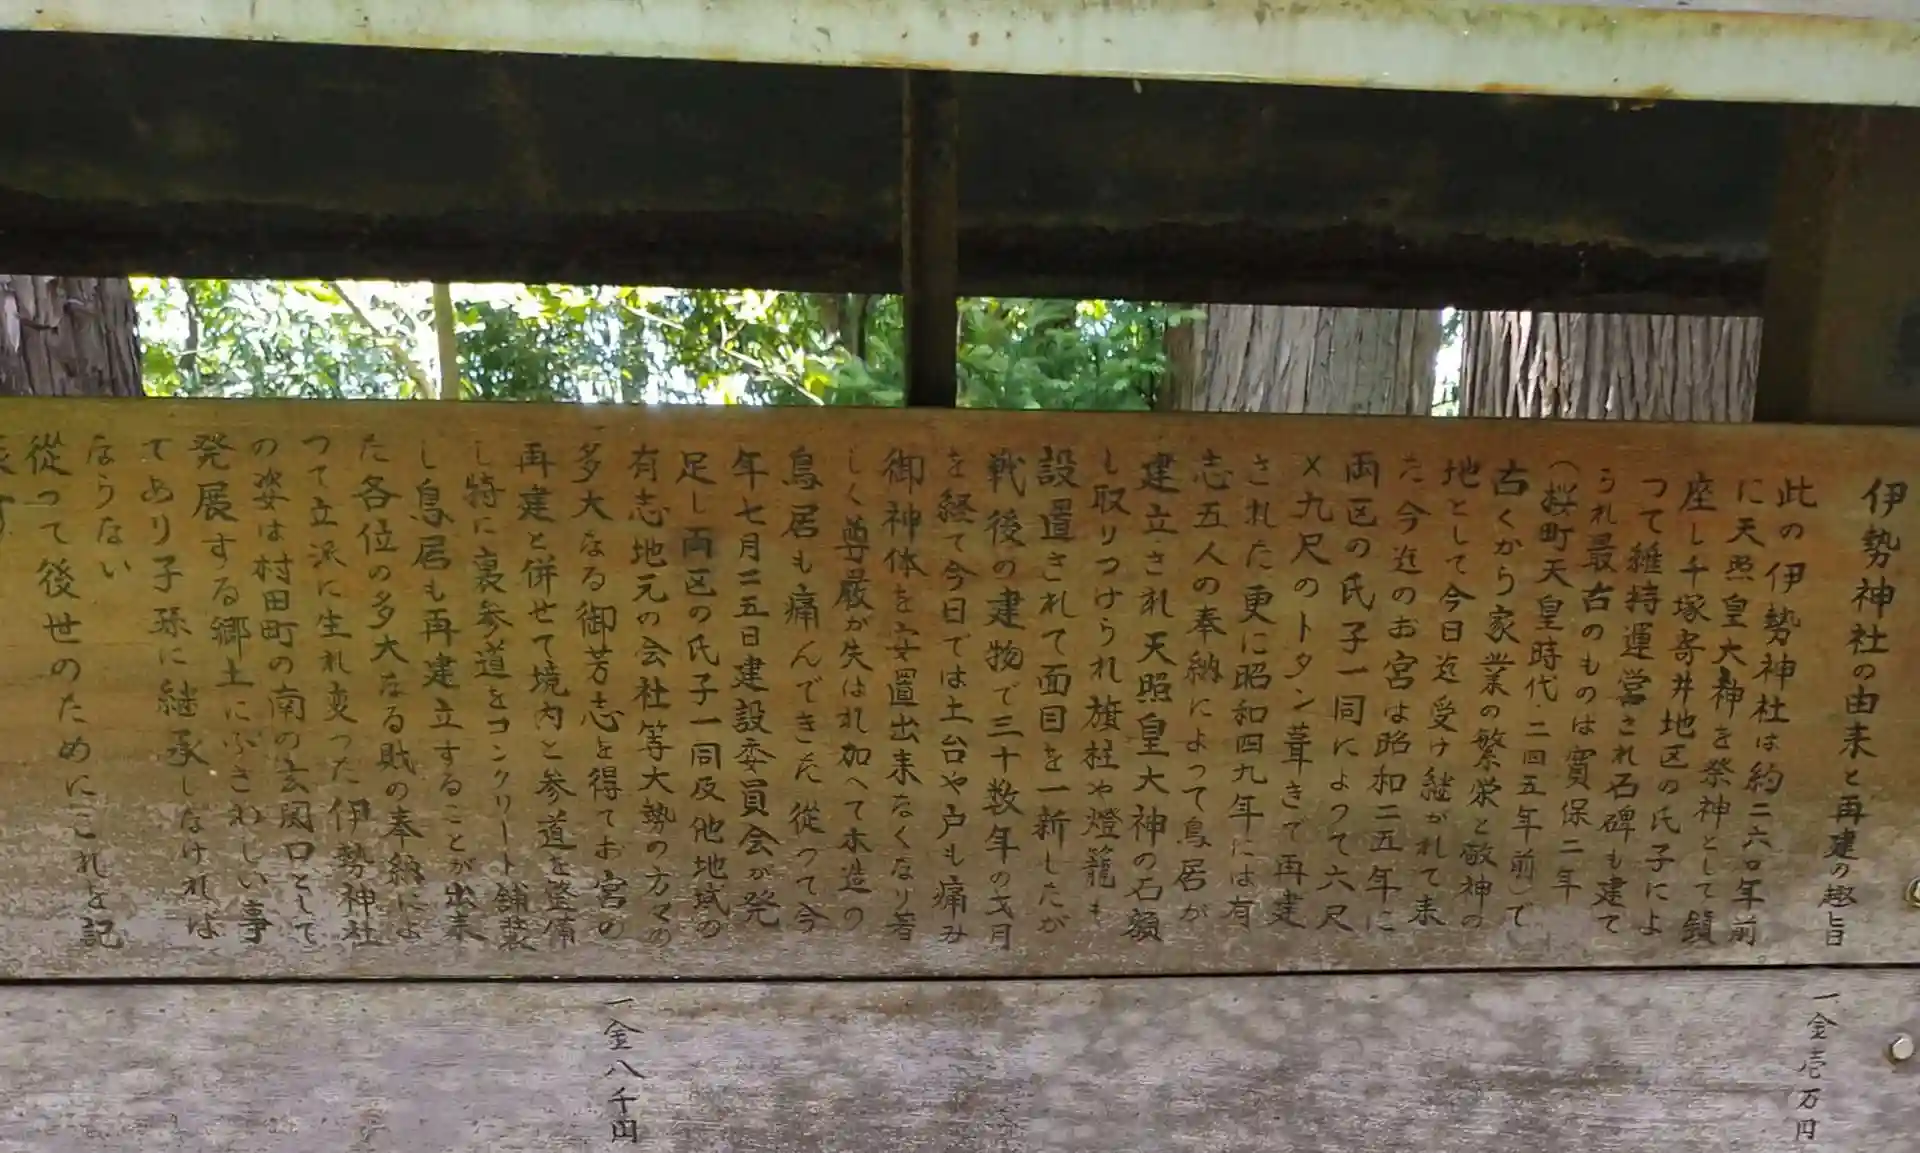 伊勢神社の由来と再建の趣旨
此の伊勢神社は約二六〇年前
に天照皇大神を祭神として鎮
座し千塚寄井地区の氏子によ
つて維持運営され石碑も建て
られ最古のものは寛保二年
（桜町天皇時代二四五年前）で
古くから家業の繁栄と敬神の
地として今日迄受け継がれて来
た今迄のお宮は昭和二五年に
両区の氏子一同によつて六尺
×九尺のトタン葺きで再建
された更に昭和四九年には有
志五人の奉納によって鳥居が
建立され天照皇大神の石額
も取りつけられ旗柱や燈籠も
設置されて面目を一新したが
戦後の建物で三十数年の才月
を経て今日では土台や戸も痛み
御神体を安置出来なくなり著
しく尊厳が失はれ加へて木造の
鳥居も痛んできた従つて今
年七月二五日建設委員会が発
足し両区の氏子一同及他地域の
有志地元の会社等大勢の方々の
多大なる御芳志を得てお宮の
再建と併せて境内と参道を整備
し特に裏参道をコンクリート舗装
し鳥居も再建立することが出来
た各位の多大なる敗の奉納によ
つて立派に生れ変つた伊勢神社
の姿は村田町の南の玄関口として
発展する郷土にふさわしい事
であり子孫に継承しなければ
ならない
従つて後世のためにこれを記
一金壱万円
一金八千円